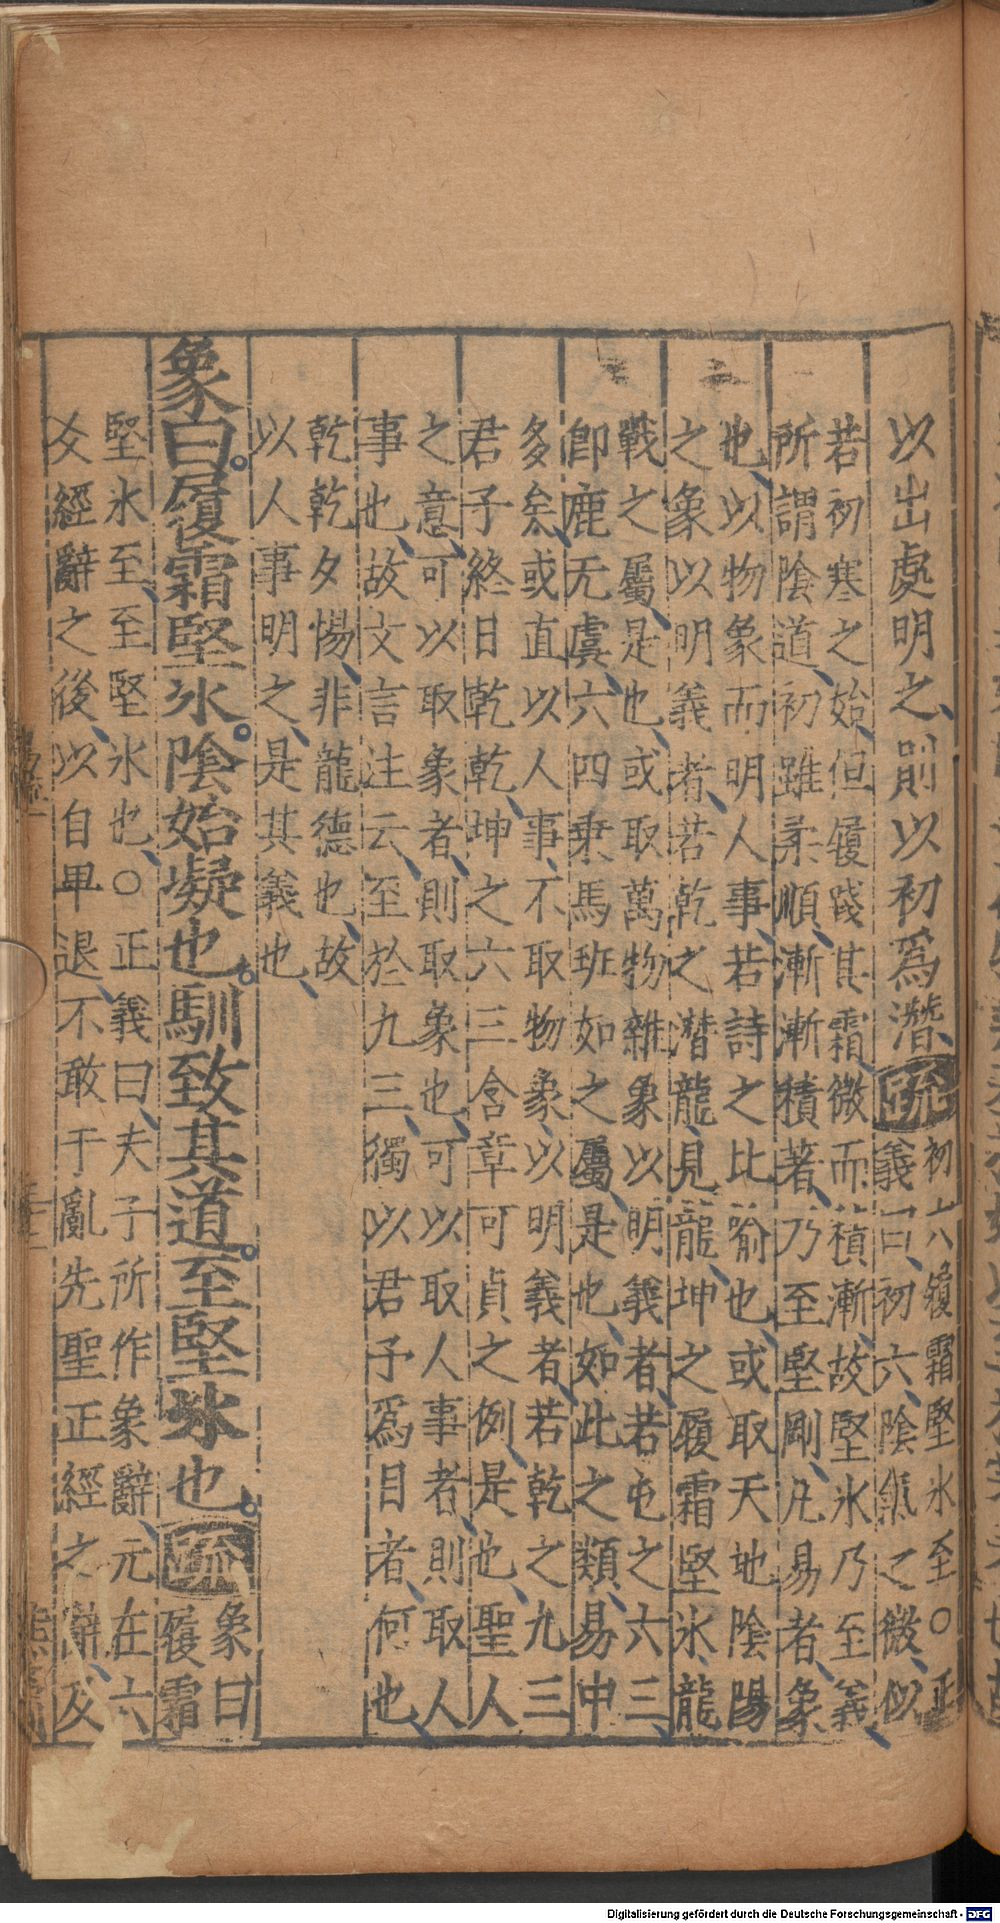 以出處明之則以初爲潛疏初六履霜堅氷至○正
義曰初六陰氣之微似
若初寒之始但履踐其霜微而積漸故堅氷乃至義
所謂陰道初雖柔順漸漸積著乃至堅剛凡易者象
也以物象而明人事若詩之比喻也或取天地陰陽
之象以明義者若乾之潛龍見龍坤之履霜堅氷龍
戰之屬是也或取萬物雜象以明義者若屯之六三
即鹿无虞六四乗馬班如之屬是也如此之類易中
多矣或直以人事不取物象以明義者若乾之九三
君子終日乾乾坤之六三含章可貞之例是也聖人
之意可以取象者則取象也可以取人事者則取人
事也故文言注云至於九三獨以君子爲目者何也
乾乾夕惕非龍德也故
以人事明之是其義也
象曰履霜堅氷陰始凝也馴致其道至堅氷也疏象曰
履霜
堅氷至至堅氷也○正義曰夫子所作象辭元在六
爻經辭之後以自卑退不敢干亂先聖正經之辭及
Digitalisierung gefördert durch die Deutsche Forschungsgemeinschaft - DFG